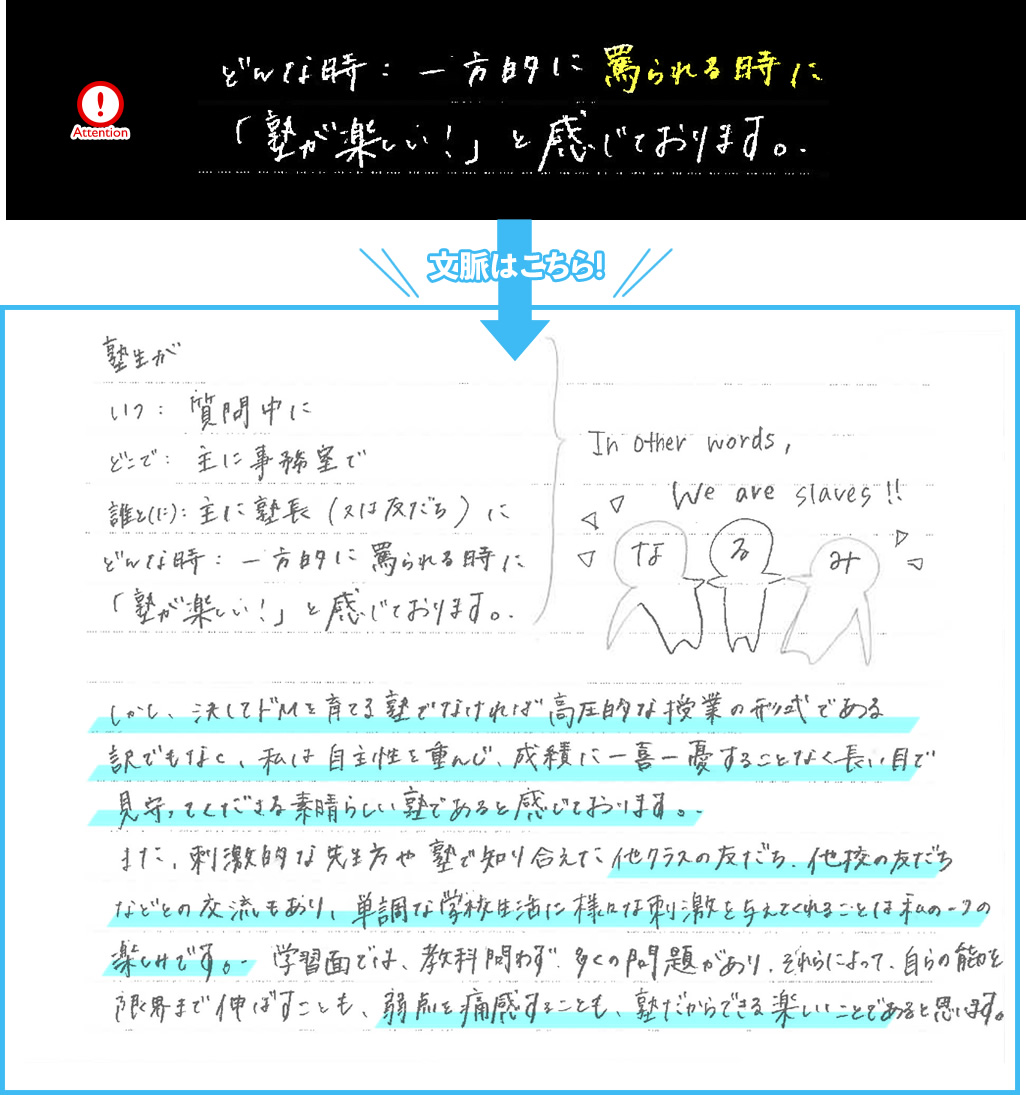 どんな時：一方的に罵られる時に
Attention
「塾が楽しい！」と感じております。
文脈はこちら！
塾生が
いつ：質問中に
どこで：主に事務室で
誰と(に)：主に塾長（又は友だち）に
どんな時：一方的に罵られる時に
「塾が楽しい！」と感じております。
In other words,
We are slaves!!
な る み
しかし、決してドMを育てる塾でなければ高圧的な授業の形式である
訳でもなく、私は自主性を重んじ、成績に一喜一憂することなく長い目で
見守ってくださる素晴らしい塾であると感じております。
また、刺激的な先生方や塾で知り合えた他クラスの友だち、他校の友だち
などとの交流もあり、単調な学校生活に様々な刺激を与えてくれることは私の一つの
楽しみです。学習面では、教科問わず、多くの問題があり、それらによって、自らの能力を
限界まで伸ばすことも、弱点を痛感することも、塾だからできる楽しいことであると思います。